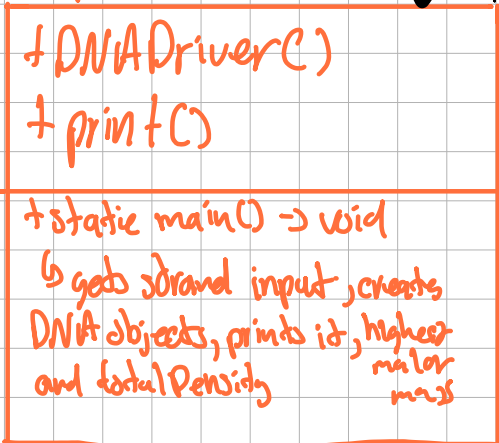 + DNADriver()
+ print()
+ static main() -> void
↳ gets strand input, creates
DNA objects, prints it, highest
molar
and total Density
mass